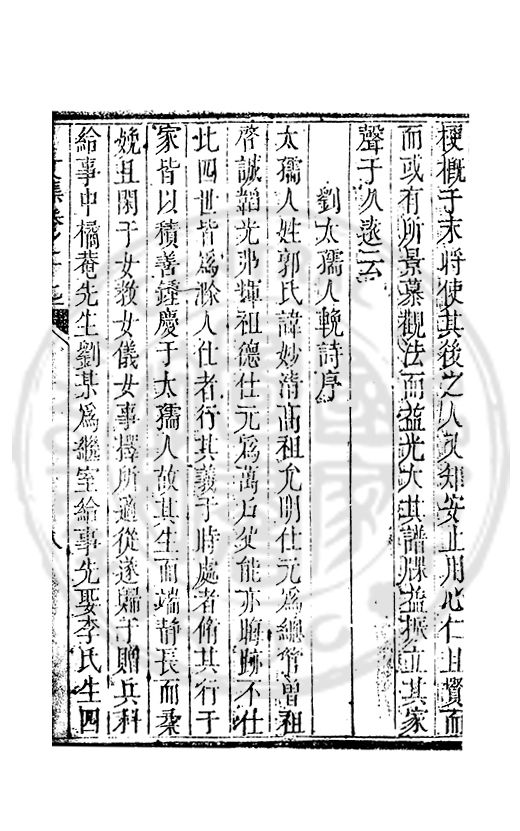 梗槪于末將使其後之人攷知安止用心仁且賢而
而或有所景慕觀法而益光大其譜牒益振立其家
聲于久遠云
劉太孺人輓詩序
太孺人姓郭氏諱妙清高祖允明仕元爲總管曾祖
啓誠韜光弗輝祖德仕元爲萬戶父能亦晦跡不仕
此四世皆爲滁人仕者行其義于時處者脩其行于
家皆以積善鍾慶于太孺人故其生而端静長而柔
婉且閑于女教女儀女事擇所適從遂歸于贈兵科
給事中橘菴先生劉某爲繼室給事先娶李氏生四